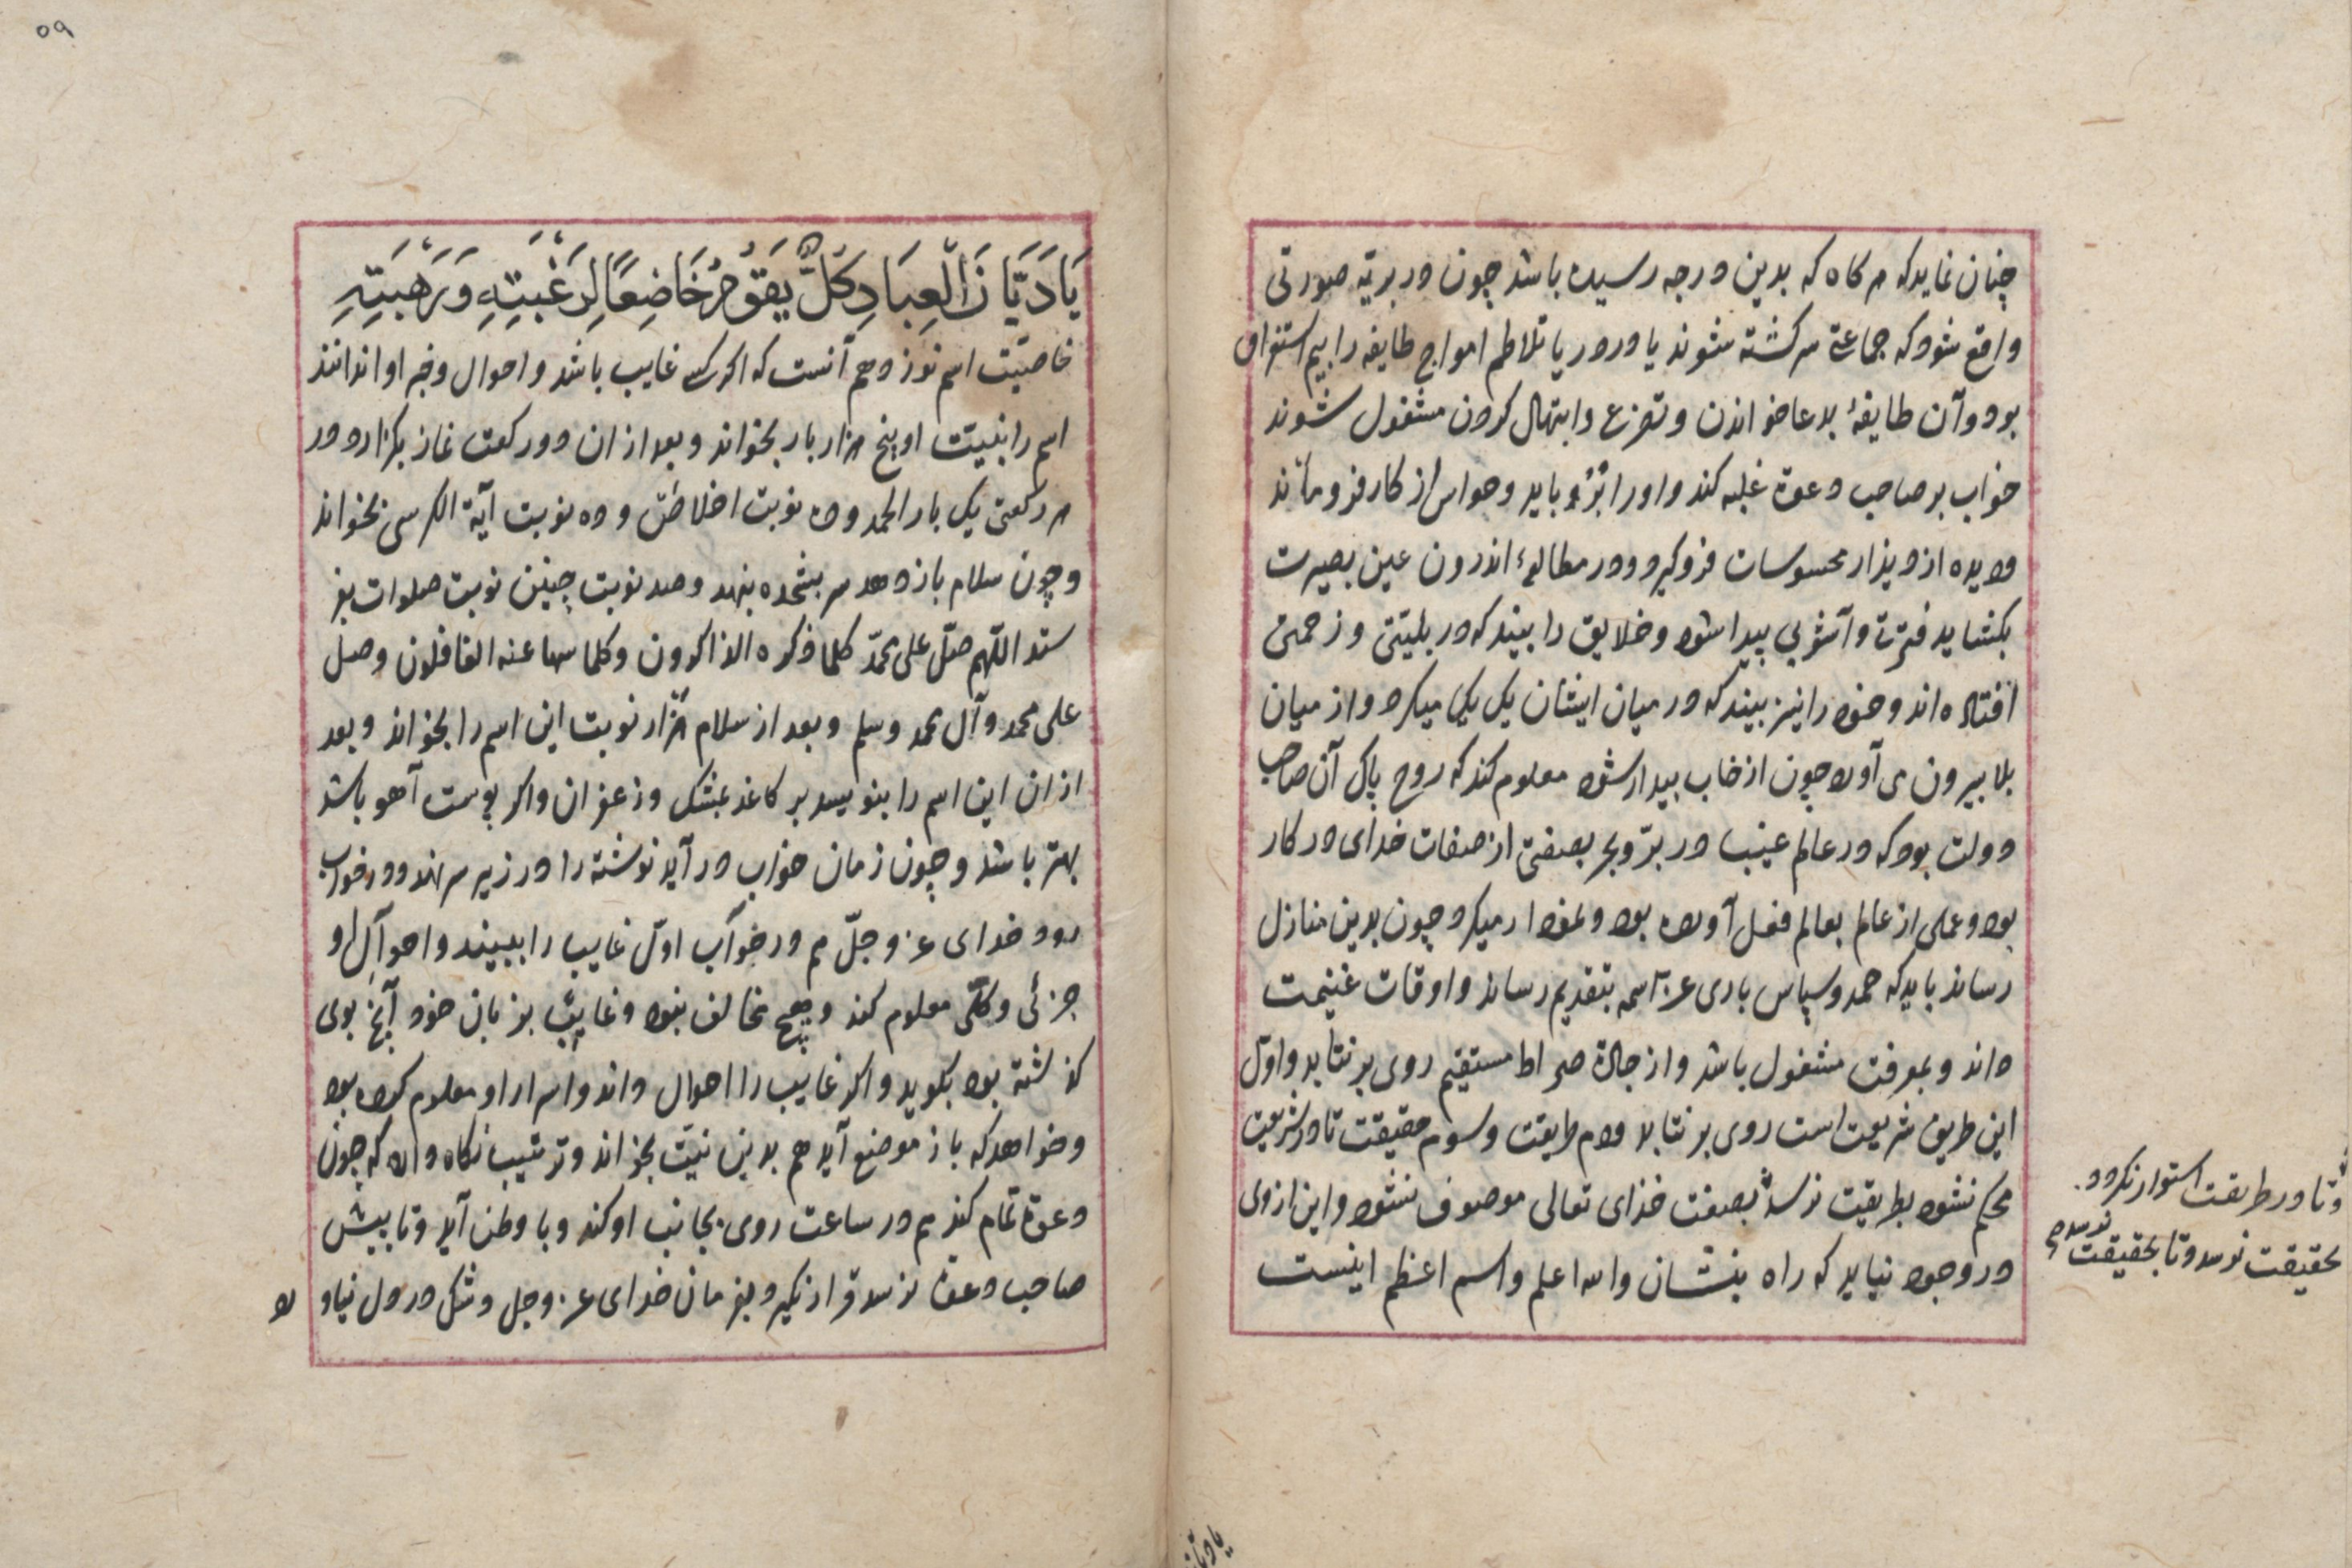 چنان نماید که هر کاه که بدین درجه رسیده باشد چون در بریّه صورتی
واقع شود که جماعتی سرکشته شوند یا در دریا تلاطم امواج طایفه را بیم استغراق
بود و آن طایفهٔ بدعا خواندن و تضرع و ابتهال کردن مشغول شوند
خواب بر صاحب دعوة غلبه کند و اورا باید و حواس از کار فرو ماند
و دیده از دیدار محسوسات فرو کیرد و در مطالعهٔ اندرون عین بصیرت
بکشاید فترت و آشوبی پیدا شود و خلایق را بیند که در بلیتی و زحمتی
افتاده اند و خود را نیز بیند که در میان ایشان یک یک میکرد و از میان
بلا بیرون می آورد چون از خاب بیدار شود معلوم کند که روح پاک آن صاحب
دولت بود که در عالم غیب در برّ و بحر بصفتی از صفات خدای در کار
بود و عملی از عالم بعالم فعل آورده بود و میکرد چون بدین منازل
رساند باید که حمد و سپاس باری عزّ اسمه بتقدیم رساند و اوقات غنیمت
داند و بمعرفت مشغول باشد و از جادة صراط مستقیم روی بر نتابد و اوّل
این طریق شریعت است روی بر نتابد دوم طریقت و سوم حقیقت تا در شریعت
محکم نشود بطریقت نرسد بصفت خدای تعالی موصوف نشود و این از وی
در وجود نیاید که راه بنشان والله اعلم و اسم اعظم اینست
و تا در طریقت استوار نکردد
بحقیقت نرسد و تا بحقیقت نرسد
۵۹
یَا دَیَّانَ الْعِبَادِ کُلٌّ یَقُومُ خَاضِعًا لِرَغْبَتِهِ وَرَهْبَتِهِ
خاصیّت اسم نوزدهم آنست که اکر کسی غایب باشد و احوال و خبر او ندانند
اسم را بنیّت او پنج هزار بار بخواند و بعد از ان دو رکعت نماز بکزارد در
هر رکعتی یک بار الحمد و ده نوبت اخلاص و ده نوبت آیة الکرسی بخواند
و چون سلام باز دهد سر بسجده بنهد و صد نوبت چنین نوبت صلوات بفر
ستد اللّهم صلّ علی محمّد کلما ذکره الذاکرون و کلما سها عنه الغافلون وصل
علی محمد و آل محمد وسلم و بعد از سلام هزار نوبت این اسم را بخواند و بعد
از ان این اسم را بنویسد بر کاغد بمشک و زعفران و اکر پوست آهو باشد
بهتر باشد و چون زمان خواب در آید نوشته را در زیر سر نهد و در خواب
رود خدای عزّ و جلّ هم در خواب اوّل غایب را ببیند و احوال او
جزئی و کلّی معلوم کند و هیچ مخالف نبود و غایب بزبان خود آنچ بوی
کذشته بود بکوید و اکر غایب را احوال داند و اسرار او معلوم کرده بود
و خواهد که باز موضع آید هم بدین نیّت بخواند و ترتیب نکاه دارد که چون
دعوة تمام کند هم در ساعت روی بجانب او کند و با وطن آید و تا پیش
صاحب دعوة نرسد قرار نکیرد بفرمان خدای عز و جل و شک در دل نیاو
رد